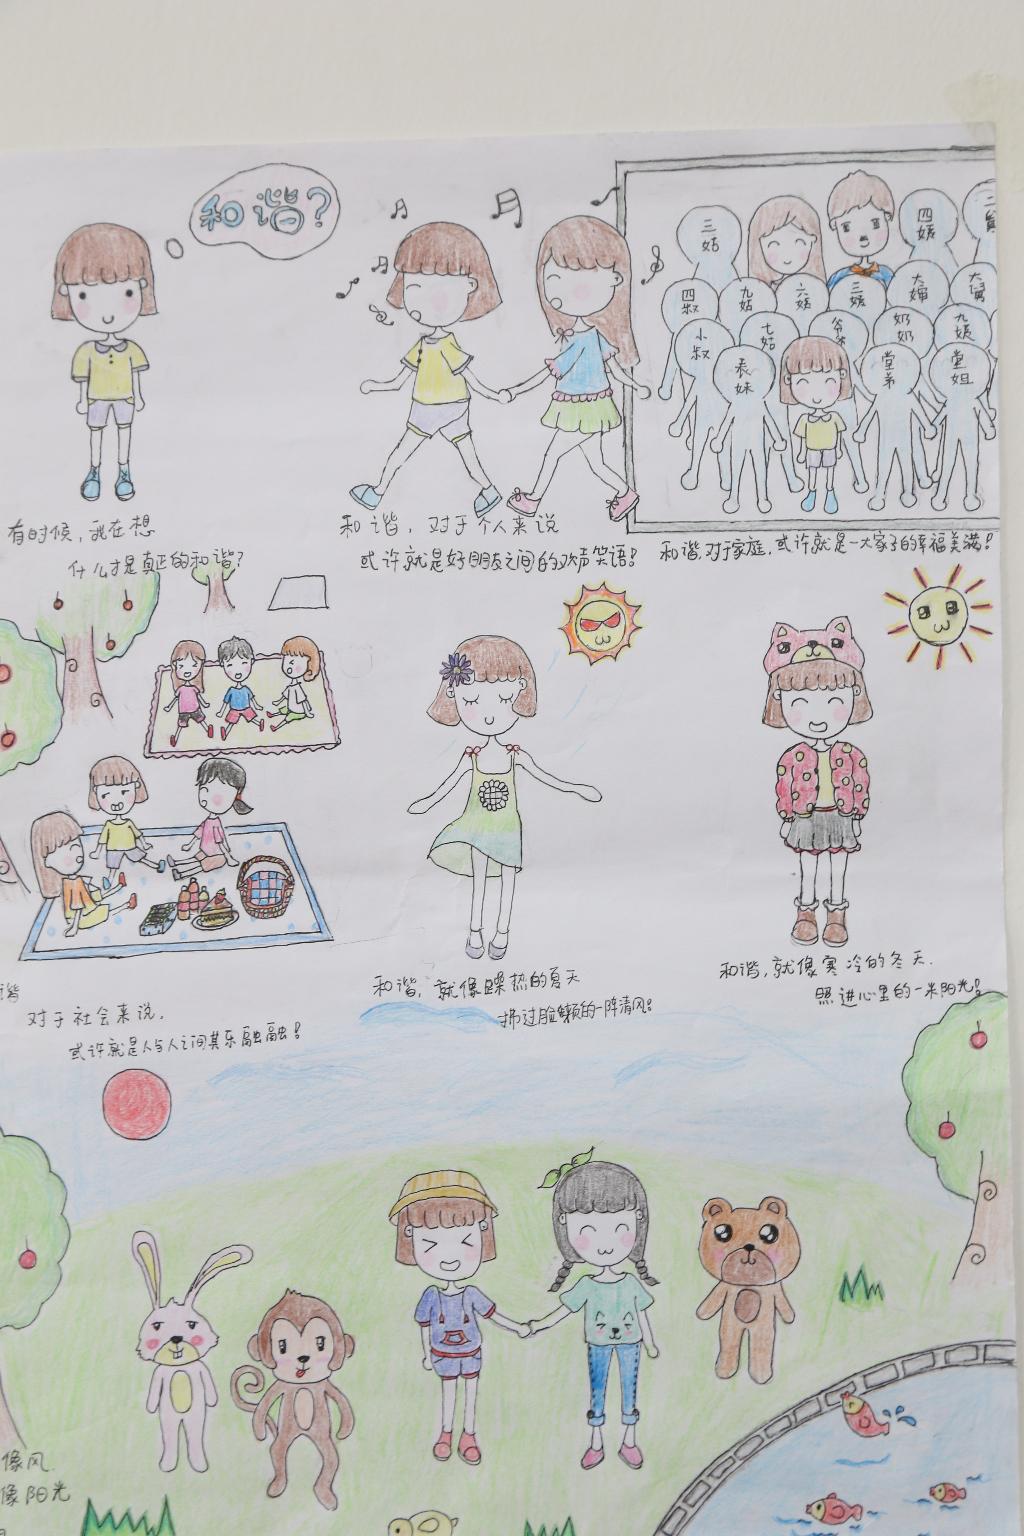 和谐?
有时候,我在想
什么才是真正的和谐?
和谐,对于个人来说
或许就是好朋友之间的欢声笑语!
三姑
四姨
四叔
九姑
六姑
三姨
大婶
大舅
小叔
七姑
爷爷
奶奶
九姨
表妹
堂弟
堂姐
和谐,对于家庭,或许就是一大家子的幸福美满!
谐
对于社会来说,
或许就是人与人之间其乐融融!
和谐,就像躁热的夏天
拂过脸颊的一阵清风!
和谐,就像寒冷的冬天.
照进心里的一米阳光!
像风.
像阳光